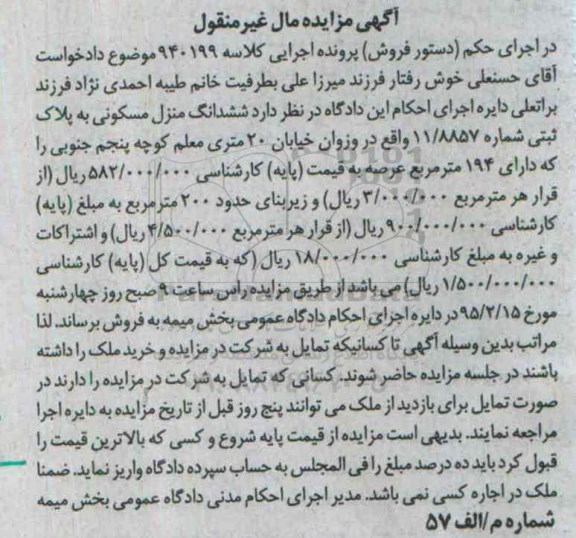 آگهی مزایده مال غیرمنقول
در اجرای حکم (دستور فروش) پرونده اجرایی کلاسه ۹۴۰۱۹۹ موضوع دادخواست
آقای حسنعلی خوش رفتار فرزند میرزا علی بطرفیت خانم طیبه احمدی نژاد فرزند
براتعلی دایره اجرای احکام این دادگاه در نظر دارد ششدانگ منزل مسکونی به پلاک
ثبتی شماره ۱۱/۸۸۵۷ واقع در وزوان خیابان ۲۰ متری معلم کوچه پنجم جنوبی را
که دارای ۱۹۴ مترمربع عرصه به قیمت (پایه) کارشناسی ۵۸۲/۰۰۰/۰۰۰ ریال (از
قرار هر مترمربع ۳/۰۰۰/۰۰۰ ریال) و زیربنای حدود ۲۰۰ مترمربع به مبلغ (پایه)
کارشناسی ۹۰۰/۰۰۰/۰۰۰ ریال (از قرار هر مترمربع ۴/۵۰۰/۰۰۰ ریال) و اشتراکات
و غیره به مبلغ کارشناسی ۱۸/۰۰۰/۰۰۰ ریال (که به قیمت کل (پایه) کارشناسی
۱/۵۰۰/۰۰۰/۰۰۰ ریال) می باشد از طریق مزایده راس ساعت ۹ صبح روز چهارشنبه
مورخ ۹۵/۲/۱۵ در دایره اجرای احکام دادگاه عمومی بخش میمه به فروش برساند. لذا
مراتب بدین وسیله آگهی تا کسانیکه تمایل به شرکت در مزایده و خرید ملک را داشته
باشند در جلسه مزایده حاضر شوند. کسانی که تمایل به شرکت در مزایده را دارند در
صورت تمایل برای بازدید از ملک می توانند پنج روز قبل از تاریخ مزایده به دایره اجرا
مراجعه نمایند. بدیهی است مزایده از قیمت پایه شروع و کسی که بالاترین قیمت را
قبول کرد باید ده درصد مبلغ را فی المجلس به حساب سپرده دادگاه واریز نماید. ضمنا
ملک در اجاره کسی نمی باشد. مدیر اجرای احکام مدنی دادگاه عمومی بخش میمه
شماره م/الف ۵۷